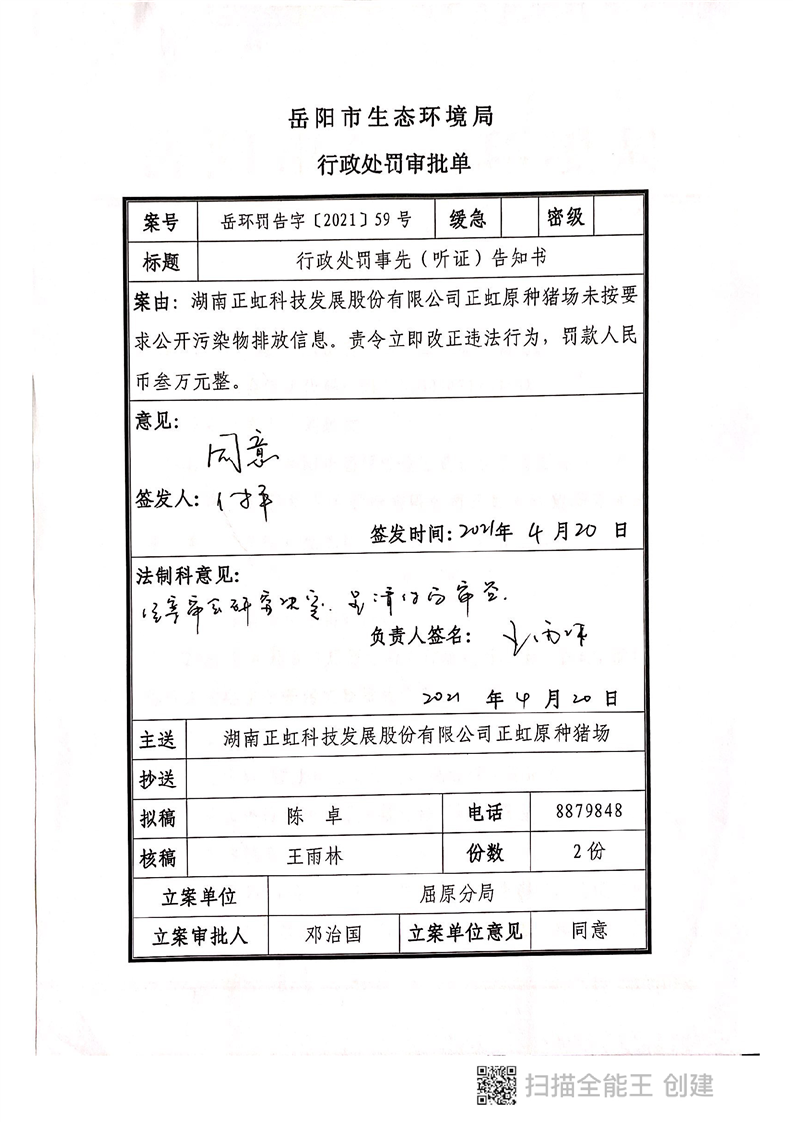 岳阳市生态环境局
行政处罚审批单
案号 岳环罚告字〔2021〕59号 缓急 密级
标题 行政处罚事先(听证)告知书
案由:湖南正虹科技发展股份有限公司正虹原种猪场未按要
求公开污染物排放信息。责令立即改正违法行为,罚款人民
币叁万元整。
意见:
同意
签发人:
签发时间:2021年 4 月20 日
法制科意见:
负责人签名:
2021 年 4 月 20 日
主送 湖南正虹科技发展股份有限公司正虹原种猪场
抄送
拟稿 陈 卓 电话 8879848
核稿 王雨林 份数 2份
立案单位 屈原分局
立案审批人 邓治国 立案单位意见 同意
扫描全能王 创建